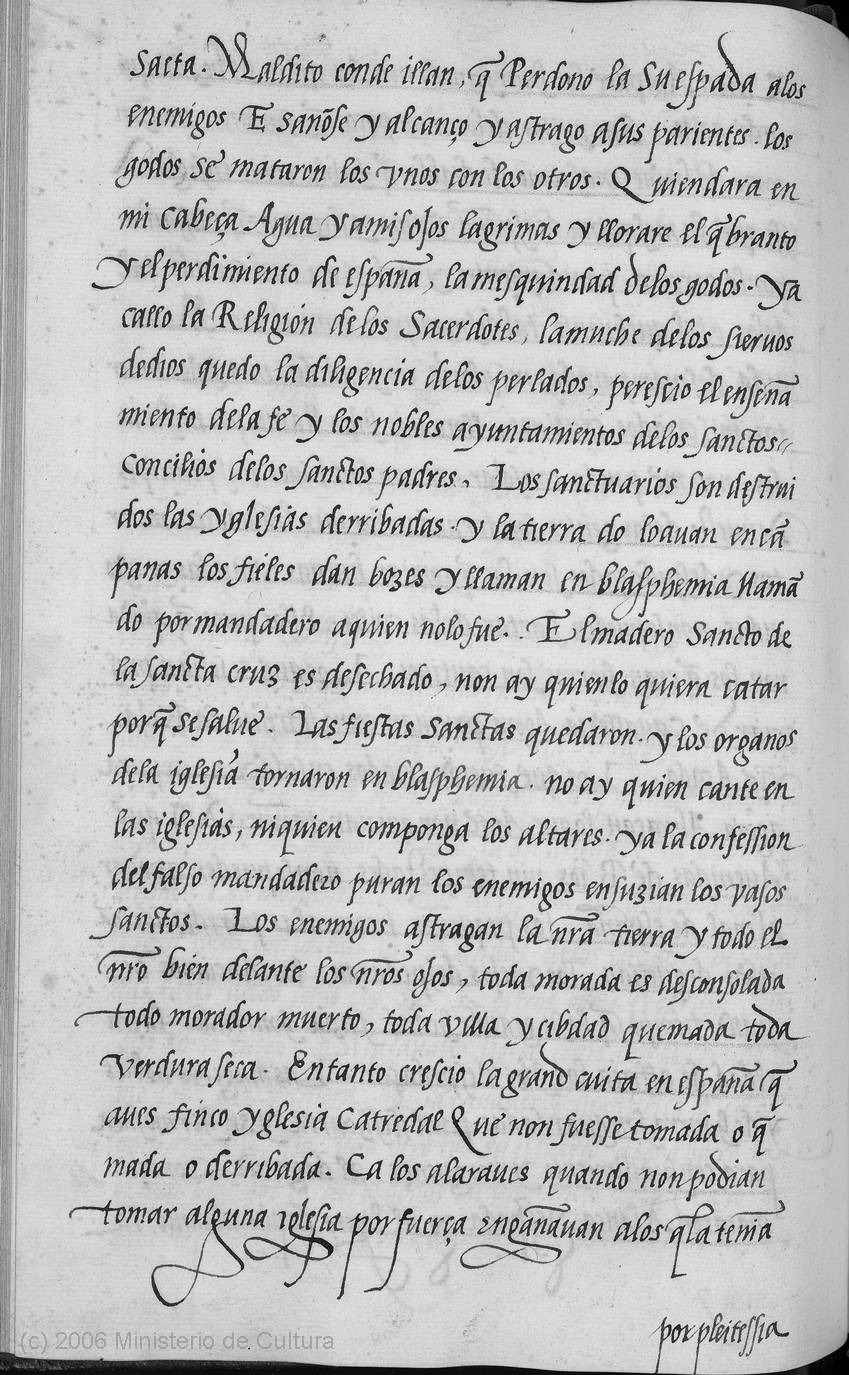 Saeta. Maldito conde illan, q̃ Perdono la Su espada alos
enemigos E sanõse y alcanço y astrago asus parientes. los
godos se mataron los vnos con los otros. Quiendara en
mi cabeça Agua yamis ojos lagrimas y llorare el q̃branto
y el perdimiento de españa, la mesquindad delos godos. ya
callo la Religión delos Sacerdotes, lamuche delos siervos
dedios quedo la diligencia delos perlados, perescio el enseña
miento dela fe y los nobles ayuntamientos delos sanctos
concilios delos sanctos padres. Los sanctuarios son destrui
dos las yglesias derribadas. y la tierra do loauan en cã
panas los fieles dan bozes y llaman en blasphemia llamã
do por mandadero aquien nolo fue. El madero Sancto de
la sancta cruz es desechado, non ay quien lo quiera catar
porq̃ se salue. Las fiestas sanctas quedaron. y los organos
dela iglesia tornaron en blasphemia. no ay quien cante en
las iglesias, ni quien componga los altares. ya la confession
del falso mandadero puran los enemigos ensuzian los vasos
sanctos. Los enemigos astragan la nr̃a tierra y todo el
nr̃o bien delante los nr̃os ojos, toda morada es desconsolada
todo morador muerto, toda villa y cibdad quemada toda
verdura seca. En tanto crescio la grand cuita en españa q̃
aues finco yglesia Catredal Que non fuesse tomada o q̃
mada o derribada. Ca los alaraues quando non podian
tomar alguna iglesia por fuerça engañauan alos q̃ la teniã
por pleitessia
(c) 2006 Ministerio de Cultura